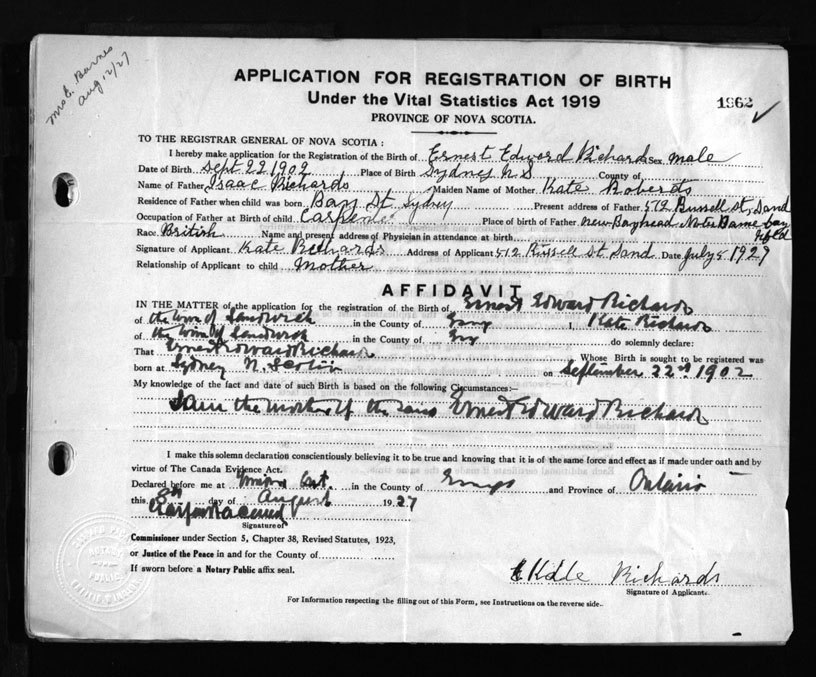 Mrs E. Barnes
Aug 12/27
APPLICATION FOR REGISTRATION OF BIRTH
Under the Vital Statistics Act 1919
1962
PROVINCE OF NOVA SCOTIA.
TO THE REGISTRAR GENERAL OF NOVA SCOTIA:
I hereby make application for the Registration of the Birth of Ernest Edword Richards Sex male
Date of Birth Sept 22 1902 Place of Birth Sydney N S County of
Name of Father Isaac Richards Maiden Name of Mother Kate Roberts
Residence of Father when child was born Bay St Sydney Present address of Father 572 Russell st, Sand
Occupation of Father at Birth of child Carpenter Place of birth of Father new Bayhead Notre Dame bay
Nfld
Race British Name and present address of Physician in attendance at birth
Signature of Applicant Kate Richards Address of Applicant 512 Russell st Sand Date July 5 1927
Relationship of Applicant to child Mother
AFFIDAVIT
IN THE MATTER of the application for the registration of the Birth of Ernest Edward Richards
of the town of Sandwich in the County of Essex I, Kate Richards
of the town of Sandwich in the County of Essex do solemnly declare:
That Ernest Edward Richards Whose Birth is sought to be registered was
born at Sydney N. Scotia on September 22nd 1902
My knowledge of the fact and date of such Birth is based on the following Circumstances:—
I am the mother of the said Ernest Edward Richards
I make this solemn declaration conscientiously believing it to be true and knowing that it is of the same force and effect as if made under oath and by
virtue of The Canada Evidence Act.
Declared before me at Ont. in the County of Essex and Province of Ontario
this 8th day of August 1927
Signature of
Commissioner under Section 5, Chapter 38, Revised Statutes, 1923,
or Justice of the Peace in and for the County of
If sworn before a Notary Public affix seal.
Richards
Signature of Applicant.
For Information respecting the filling out of this Form, see Instructions on the reverse side.